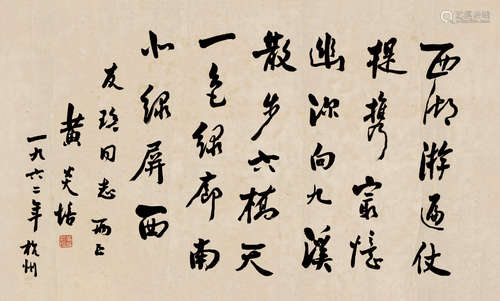 西湖游遍仗
提携最忆
幽深向九溪
散步六桥天
一色绿廊南
北绿屏西
友琦同志两正
黄炎培
一九六二年杭州